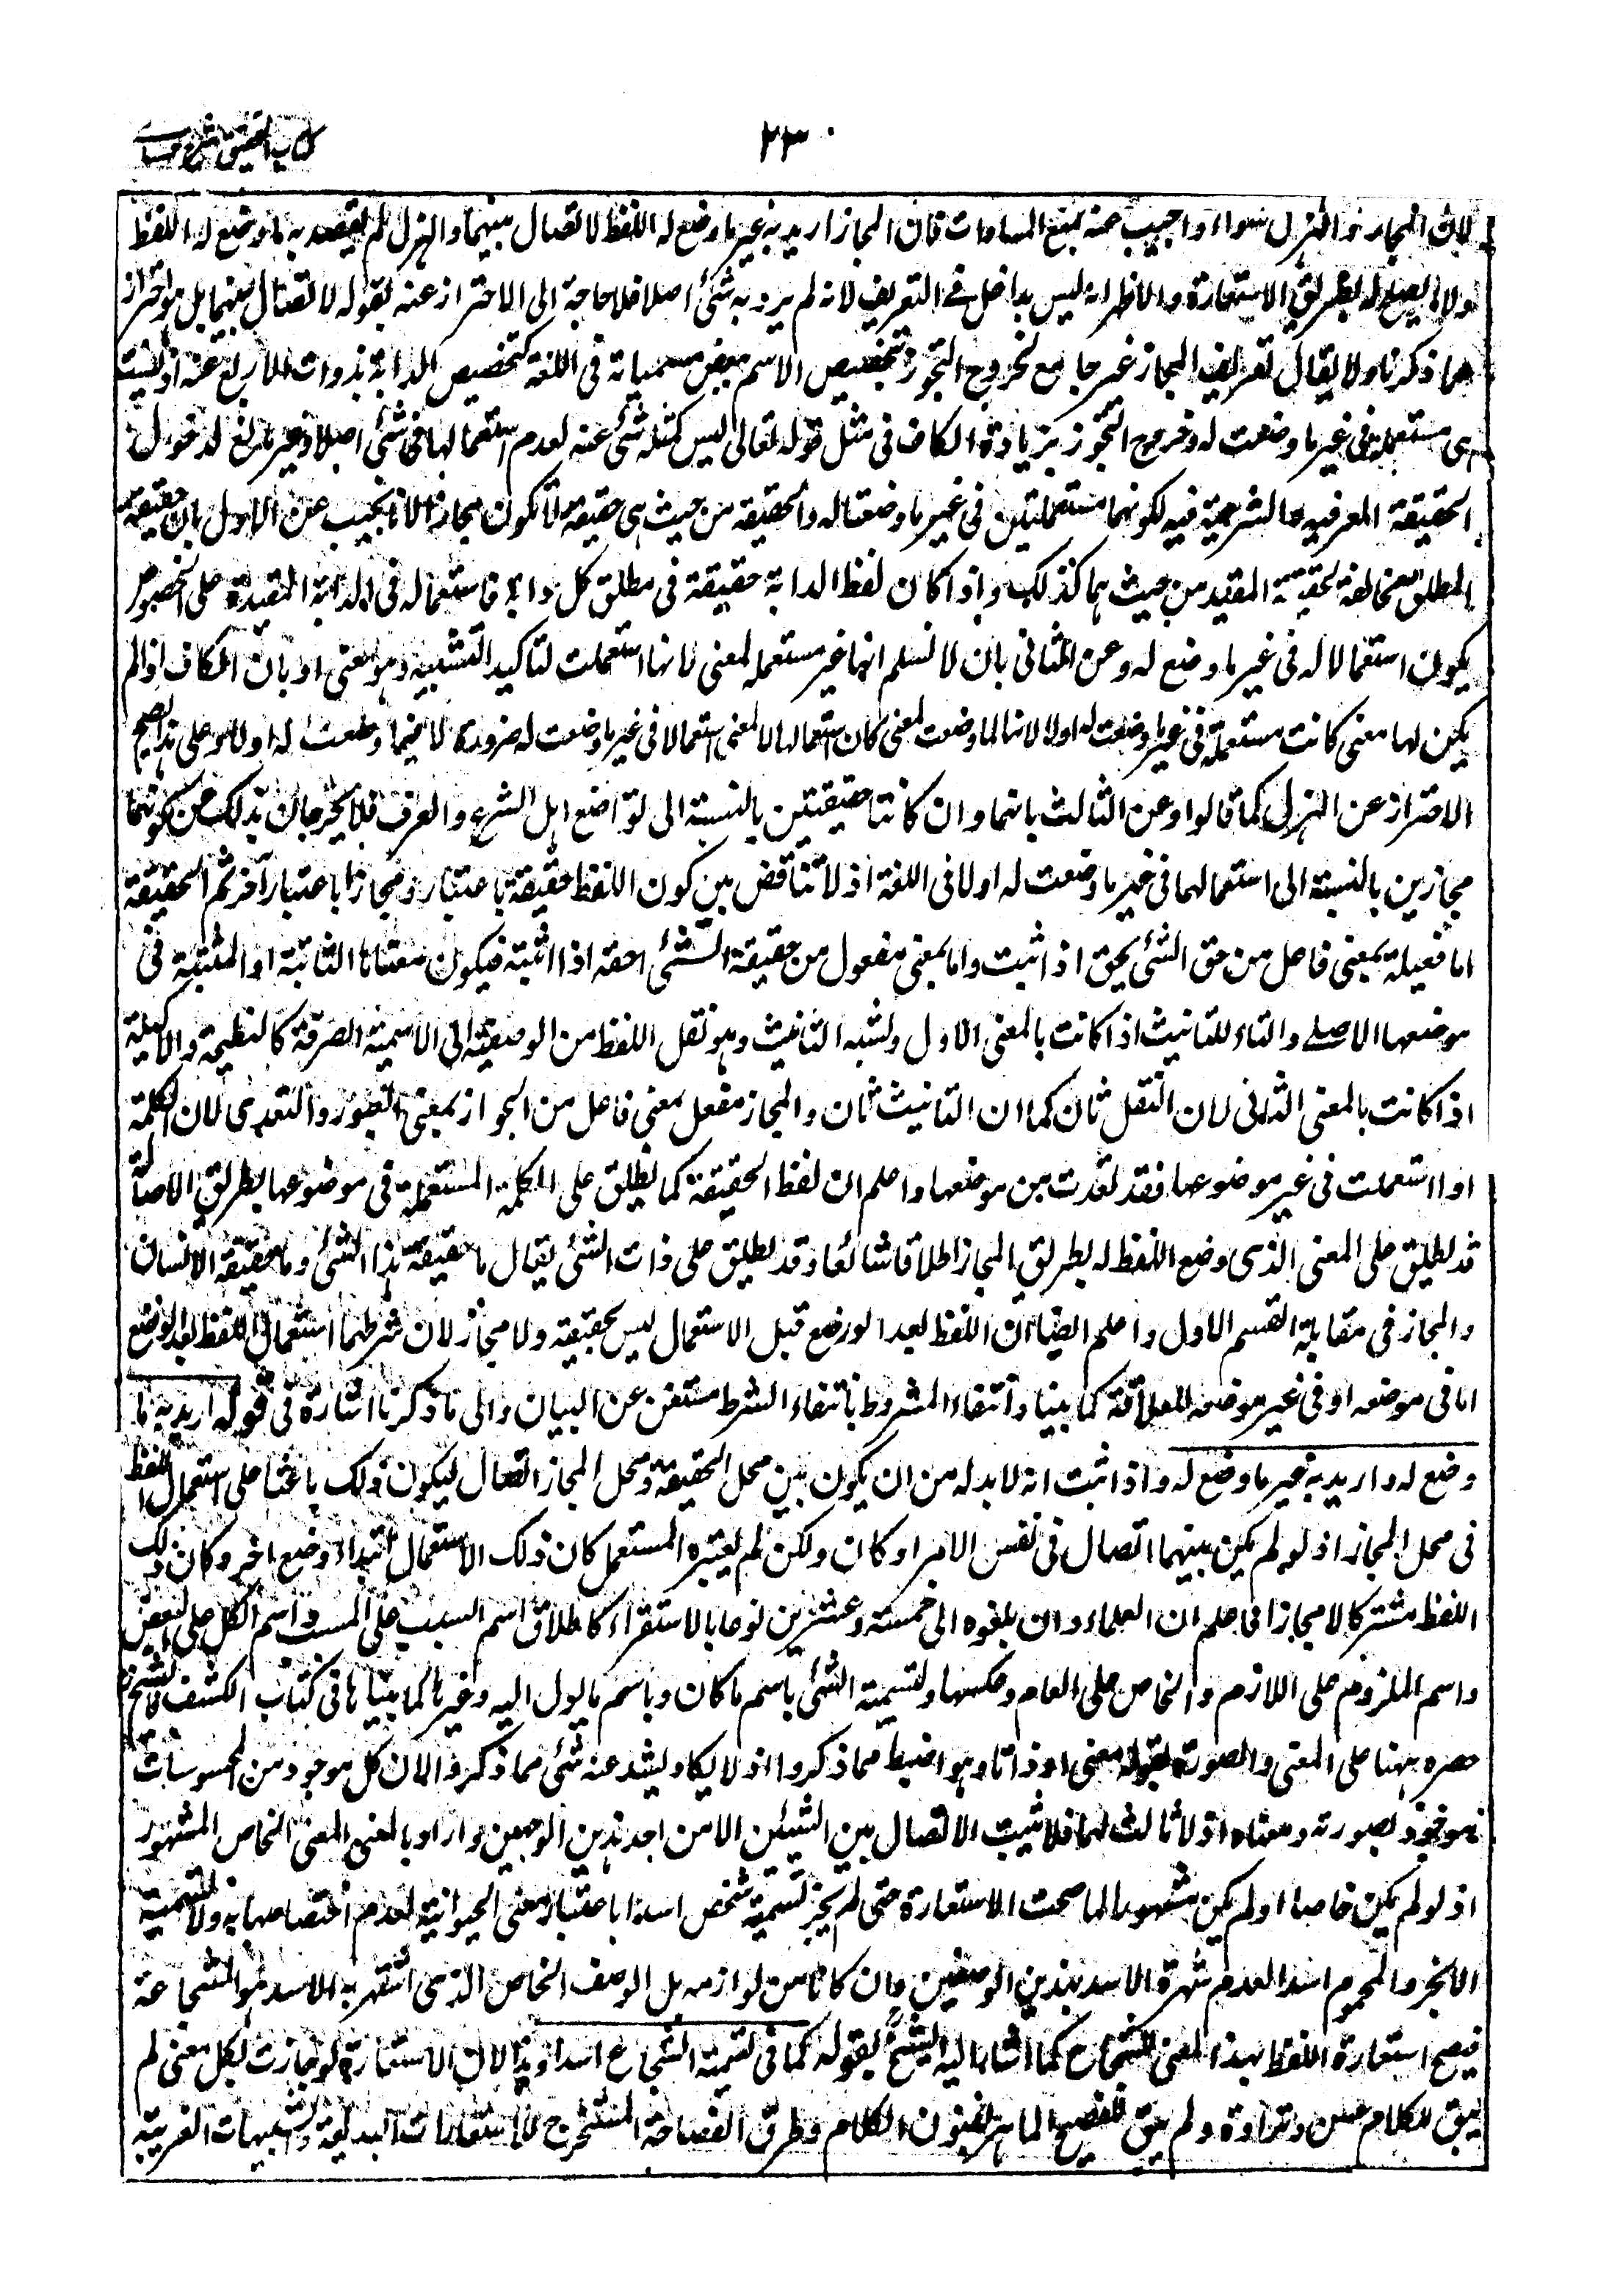 كتاب التحقيق شرح حسامي
٢٣٠
لان المجاز والهزل سواء واجيب عنه بمنع المساوات فان المجاز اريد به غير ما وضع له اللفظ لاتصال بينهما والهزل لم يقصد به ما وضع له اللفظ
ولا ما يصلح له بطريق الاستعارة والاظهر انه ليس بداخل في التعريف لانه لم يرد به شئ اصلا فلا حاجة الى الاحتراز عنه بقوله لاتصال بينهما بل هو احتراز
عما ذكرنا ولا يقال تعريف المجاز غير جامع لخروج التجوز بتخصيص الاسم ببعض مسمياته في اللغة كتخصيص الدابة بذوات الاربع عنه اذ ليست
هى مستعملة في غير ما وضعت له وخروج التجوز بزيادة الكاف في مثل قوله تعالى ليس كمثله شئ عنه لعدم استعمالها في شئ اصلا وغير مانع لدخول
الحقيقة العرفية والشرعية فيه لكونهما مستعملتين في غير ما وضعتا له والحقيقة من حيث هى حقيقة لا تكون مجازا لانا نجيب عن الاول بان حقيقة
المطلق مخالفة لحقيقة المقيد من حيث هما كذلك واذا كان لفظ الدابة حقيقة في مطلق كل دابة فاستعماله في الدابة المقيدة على الخصوص
يكون استعمالا له في غير ما وضع له وعن الثاني بان لا نسلم انها غير مستعملة لمعنى لانها استعملت لتاكيد التشبيه وهو معنى او بان الكاف اذا لم
يكن لها معنى كانت مستعملة في غير ما وضعت له اولا لانها لما وضعت لمعنى كان استعمالها لا لمعنى استعمالا في غير ما وضعت له ضرورة لا فيما وضعت له اولا وعلى هذا يصح
الاحتراز عن الهزل كما قالوا وعن الثالث بانهما وان كانتا حقيقتين بالنسبة الى تواضع اهل الشرع والعرف فلا يخرجان بذلك عن كونهما
مجازين بالنسبة الى استعمالهما في غير ما وضعت له اولا في اللغة اذ لا تناقض بين كون اللفظ حقيقة باعتبار ومجازا باعتبار آخر ثم الحقيقة
اما فعيلة بمعنى فاعل من حق الشئ يحق اذا ثبت واما بمعنى مفعول من حقيقة الشئ احقه اذا اثبته فيكون معناها الثابتة او المثبتة في
موضعها الاصلى والتاء للتانيث اذا كانت بالمعنى الاول ولشبه التانيث وهو نقل اللفظ من الوصفية الى الاسمية الصرفة كالنطيحة والاكيلة
اذا كانت بالمعنى الثاني لان النقل ثان كما ان التانيث ثان والمجاز مفعل بمعنى فاعل من الجواز بمعنى العبور والتعدى لان الكلمة
اذا استعملت في غير موضوعها فقد تعدت من موضعها واعلم ان لفظ الحقيقة كما يطلق على الكلمة المستعملة في موضوعها بطريق الاصالة
قد يطلق على المعنى الذى وضع اللفظ له بطريق المجاز اطلاقا شائعا وقد يطلق على ذات الشئ يقال ما حقيقة هذا الشئ وما حقيقة الانسان
والمجاز في مقابلة القسم الاول واعلم ايضا ان اللفظ بعد الوضع قبل الاستعمال ليس بحقيقة ولا مجاز لان شرطهما استعمال اللفظ بعد الوضع
اما في موضعه او في غير موضعه لعلاقة كما بينا وانتفاء المشروط بانتفاء الشرط مستغن عن البيان والى ما ذكرنا اشارة في قوله اريد به ما
وضع له واريد به غير ما وضع له واذا ثبت انه لا بد له من ان يكون بين محل الحقيقة ومحل المجاز اتصال ليكون ذلك باعثا على استعمال اللفظ
في محل المجاز اذ لو لم يكن بينهما اتصال في نفس الامر او كان ولكن لم يعتبره المستعمل كان ذلك الاستعمال ابتداء وضع اخر وكان ذلك
اللفظ مشتركا لا مجازا فاعلم ان العلماء وان بلغوه الى خمسة وعشرين نوعا بالاستقراء كاطلاق اسم السبب على المسبب واسم الكل على البعض
واسم الملزوم على اللازم والخاص على العام وعكسها وتسمية الشئ باسم ما كان وباسم ما يول اليه وغيرها كما بيناها في كتاب الكشف فالشيخ
حصره ههنا على المعنى والصورة بقوله معنى او ذاتا وهو اضبط مما ذكروا اذ لا يكاد يشذ عنه شئ مما ذكروا لان كل موجود من المحسوسات
فهو موجود بصورته ومعناه اذ لا ثالث لهما فلا يثبت الاتصال بين الشيئين الا من احد هذين الوجهين واراد بالمعنى المعنى الخاص المشهور
اذ لو لم يكن خاصا او لم يكن مشهورا لما صحت الاستعارة حتى لم يجز تسمية شخص اسدا باعتبار معنى الحيوانية لعدم اختصاصها به ولا تسمية
الابخر والمحموم اسدا لعدم شهرة الاسد بهذين الوصفين وان كانا من لوازمه بل الوصف الخاص الذى اشتهر به الاسد هو الشجاعة
فيصح استعارة اللفظ بهذا المعنى للشجاع كما اشار اليه الشيخ بقوله كما في تسمية الشجاع اسدا وهذا لان الاستعارة لو جازت بكل معنى لم
يبق للكلام حسن وطراوة ولم يبق للفصيح الماهر بفنون الكلام وطرق الفصاحة المستخرج للاستعارات البديعة والتشبيهات الغريبة